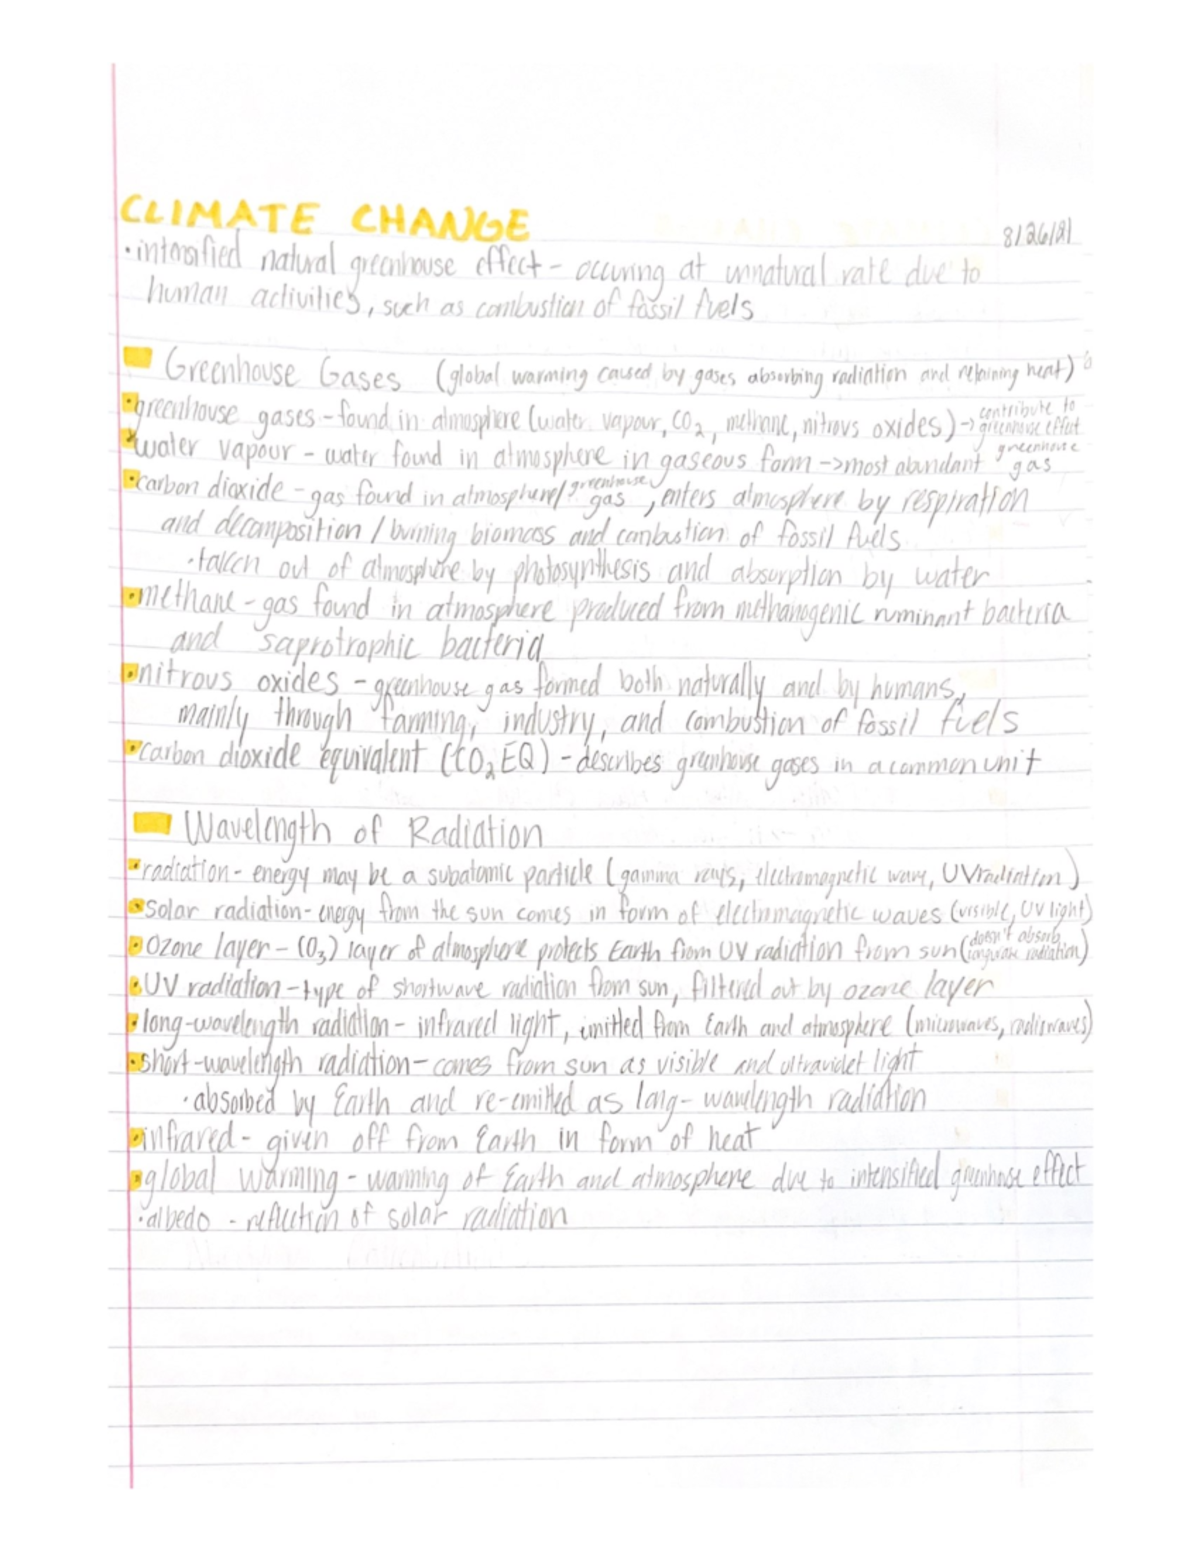 CLIMATE CHANGE
8/26/21
• intensified natural greenhouse effect - occuring at unnatural rate due to
human activities, such as combustion of fossil fuels
Greenhouse Gases (global warming caused by gases absorbing radiation and retaining heat)
• greenhouse gases - found in atmosphere (water vapour, CO2, methane, nitrous oxides) -> contribute to greenhouse effect
water vapour - water found in atmosphere in gaseous form -> most abundant greenhouse gas
• carbon dioxide - gas found in atmosphere/greenhouse gas, enters atmosphere by respiration
and decomposition / burning biomass and combustion of fossil fuels
• taken out of atmosphere by photosynthesis and absorption by water
• methane - gas found in atmosphere produced from methanogenic ruminant bacteria
and saprotrophic bacteria
• nitrous oxides - greenhouse gas formed both naturally and by humans,
mainly through farming, industry, and combustion of fossil fuels
• carbon dioxide equivalent (CO2EQ) - describes greenhouse gases in a common unit
Wavelength of Radiation
• radiation - energy may be a subatomic particle (gamma rays, electromagnetic wave, UV radiation)
• solar radiation - energy from the sun comes in form of electromagnetic waves (visible, UV light)
• Ozone layer - (O3) layer of atmosphere protects Earth from UV radiation from sun (doesn't absorb longwave radiation)
• UV radiation - type of shortwave radiation from sun, filtered out by ozone layer
• long-wavelength radiation - infrared light, emitted from Earth and atmosphere (microwaves, radiowaves)
• short-wavelength radiation - comes from sun as visible and ultraviolet light
• absorbed by Earth and re-emitted as long-wavelength radiation
• infrared - given off from Earth in form of heat
• global warming - warming of Earth and atmosphere due to intensified greenhouse effect
• albedo - reflection of solar radiation